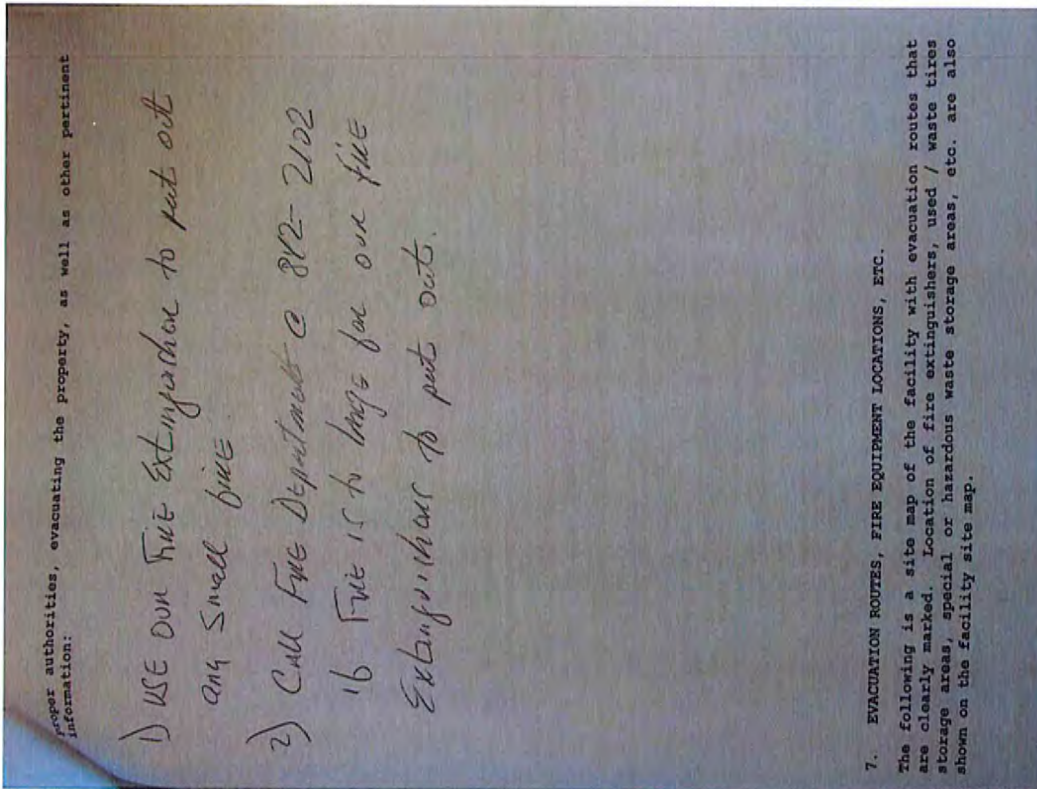 proper authorities, evacuating the property, as well as other pertinent
information:
1) USE OUR FIRE Extinguisher to put out
any Small fire
2) CALL FIRE Department @ 812-2102
if FIRE is to large for our fire
Extinguisher to put out.
7. EVACUATION ROUTES, FIRE EQUIPMENT LOCATIONS, ETC.
The following is a site map of the facility with evacuation routes that
are clearly marked. Location of fire extinguishers, used / waste tires
storage areas, special or hazardous waste storage areas, etc. are also
shown on the facility site map.